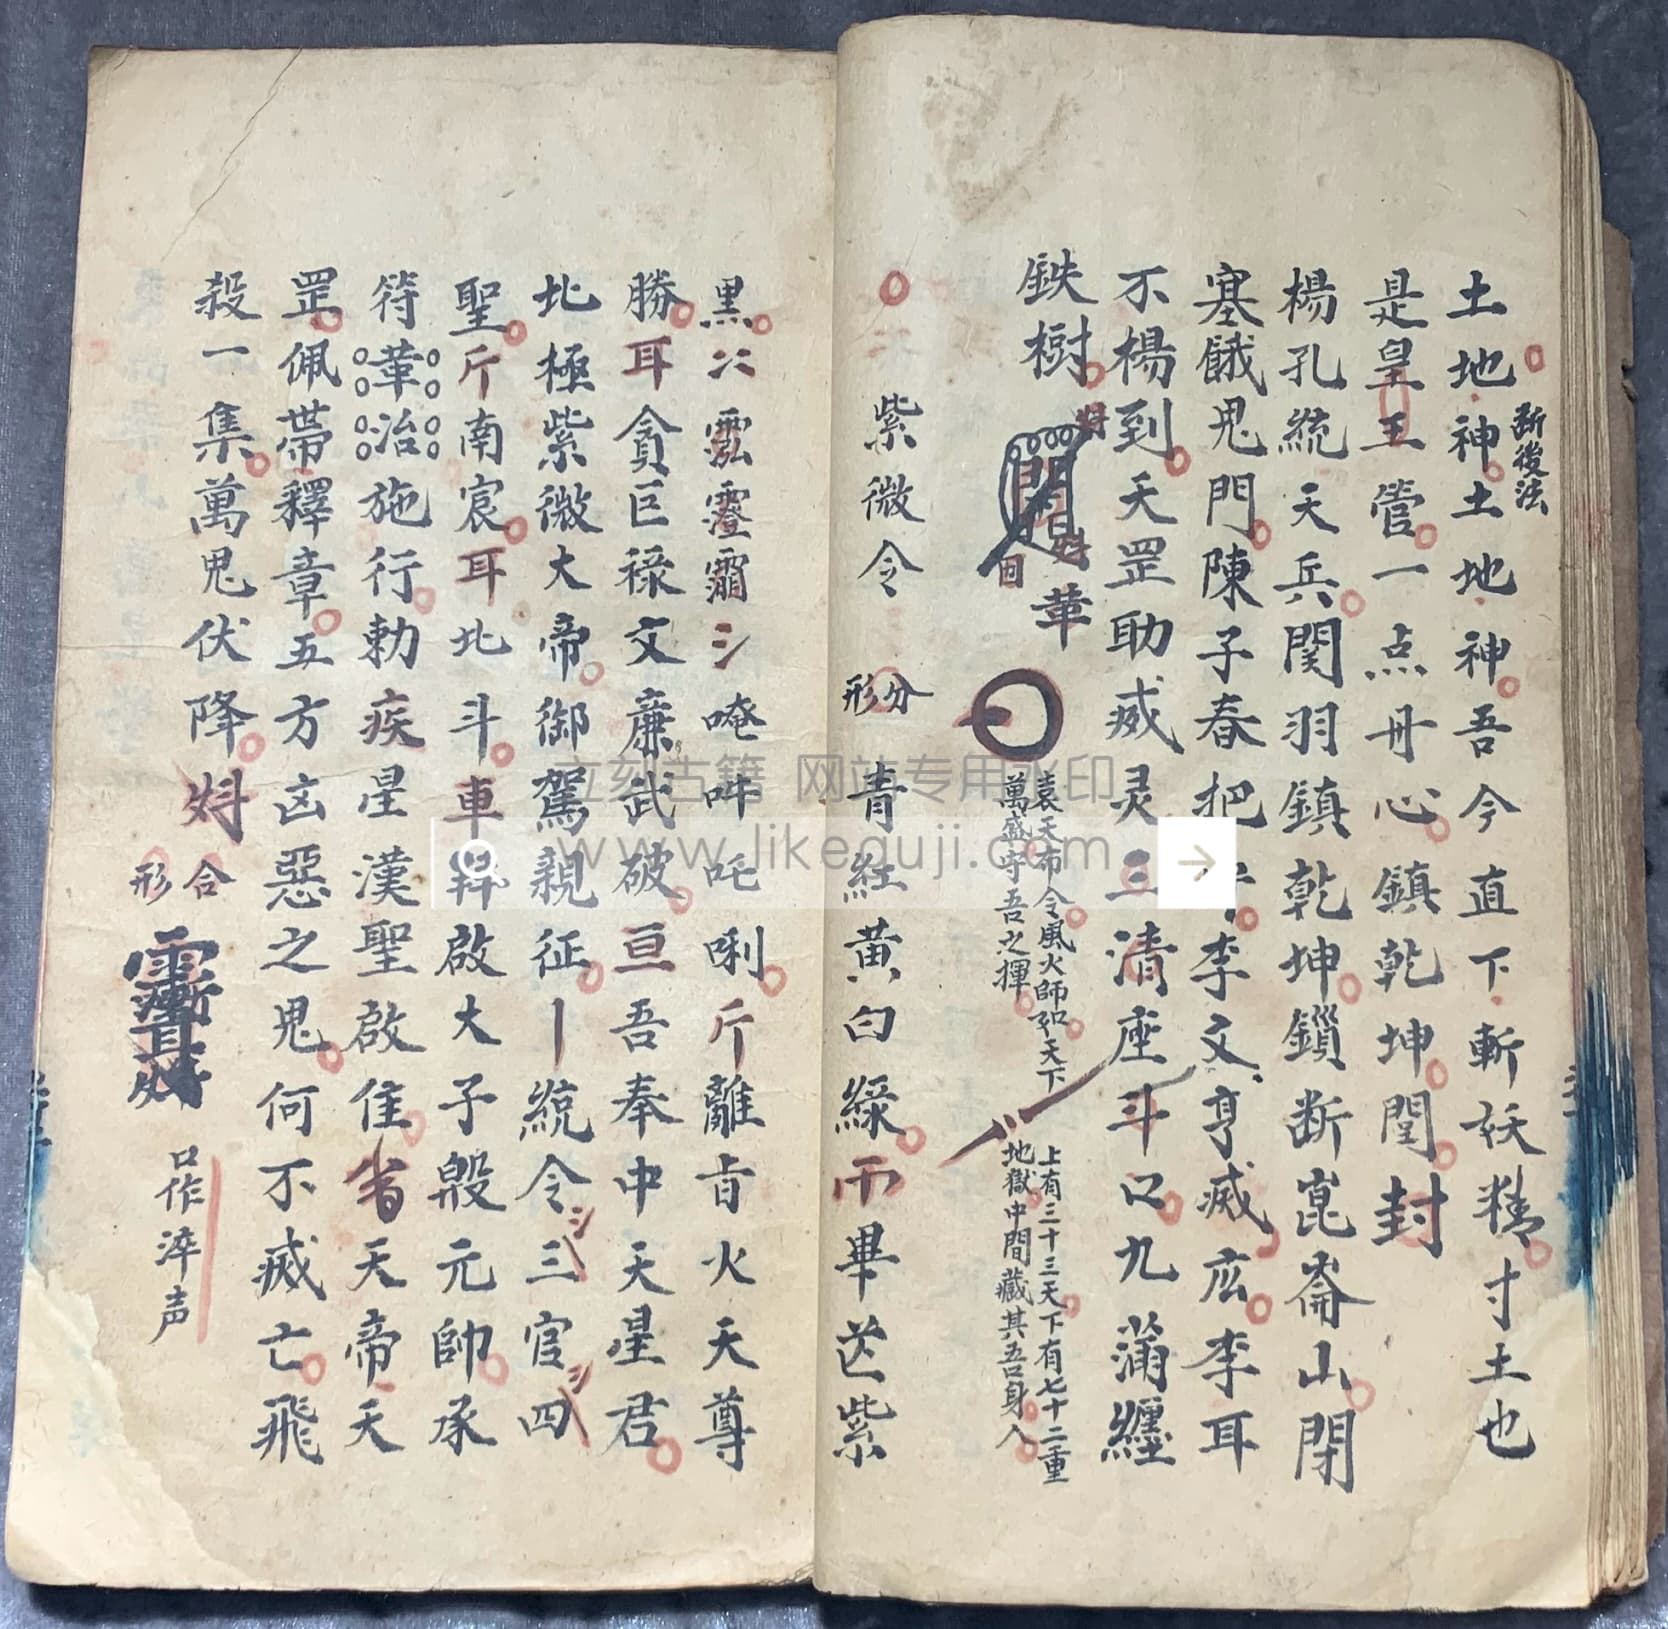 斷後法
土地神土地神吾今直下斬妖精寸土也
是皇王管一点丹心鎮乾坤閏封
楊孔統天兵関羽鎮乾坤鎖断崑崙山閉
塞餓鬼門陳子春把李文亨威庅李耳
不楊到天罡助威灵三清座斗口九蒲纏
鉄樹
華
袁天布令風火師和天下
萬盛守吾之揮
上有三十三天下有七十二重
地獄中間藏其吾身人
紫微令 分形 青紅黃白綠 畢送紫
黑 唵吽吒唎斤離肯火天尊
勝耳貪巨祿文廉武破亘吾奉中天星君
北極紫微大帝御駕親征統令三官四
聖斤南宸耳北斗車幹啟大子殷元帥承
符華治施行勅疾星漢聖啟隹 天帝天
罡佩帶釋章五方凶惡之鬼何不威亡飛
殺一集萬鬼伏降
合形
口作淬声
立刻古籍 网站专用水印
www.likeguji.com